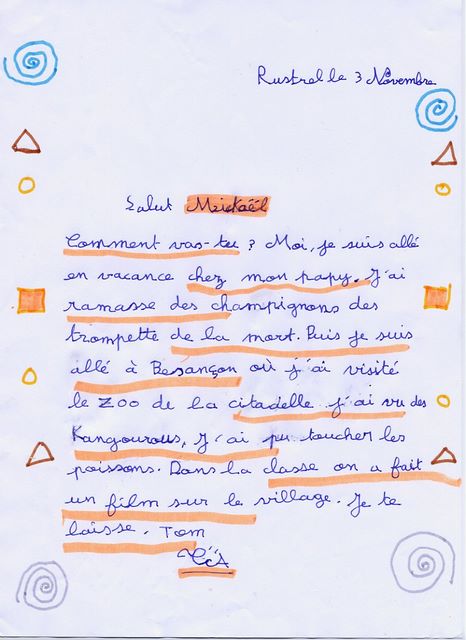 Rustrel le 3 Novembre
Salut Mickaël
Comment vas-tu ? Moi, je suis allé
en vacance chez mon papy. J'ai
ramasse des champignons des
trompette de la mort. Puis je suis
allé à Besançon où j'ai visité
le zoo de la citadelle. j'ai vu des
Kangourous, J'ai pu toucher les
poissons. Dans la classe on a fait
un film sur le village. Je te
laisse. Tom